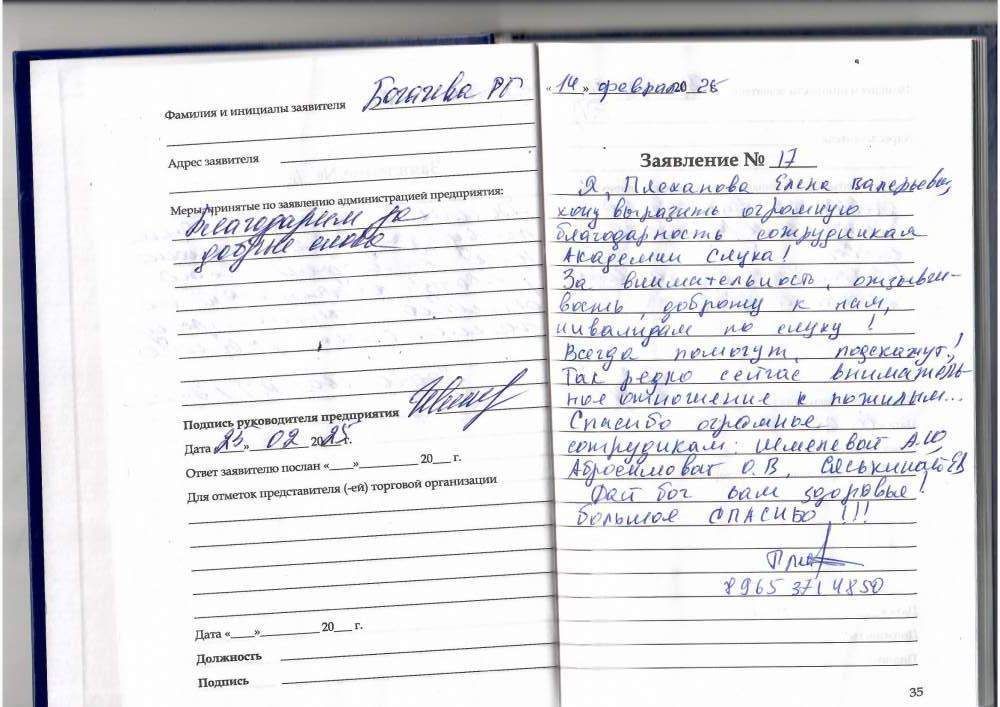 Фамилия и инициалы заявителя Богачева РГ
Адрес заявителя
Меры принятые по заявлению администрацией предприятия:
Благодарим за
добрые слова
Подпись руководителя предприятия
Дата « 25 » 02 2025 г.
Ответ заявителю послан «____»__________ 20___ г.
Для отметок представителя (-ей) торговой организации
Дата «____»__________ 20___ г.
Должность
Подпись
« 14 » февраля 20 25
Заявление № 17
Я, Плеханова Елена Валерьевна,
хочу выразить огромную
благодарность сотрудникам
Академии Слуха!
За внимательность, отзывчи-
вость, доброту к нам,
инвалидам по слуху!
Всегда помогут, подскажут!
Так редко сейчас вниматель-
ное отношение к пожилым...
Спасибо огромное
сотрудикам: Шмелевой А.Ю,
Абросимовой О.В,
Дай бог вам здоровье!
большое СПАСИБО !!!
8965 3714850
35